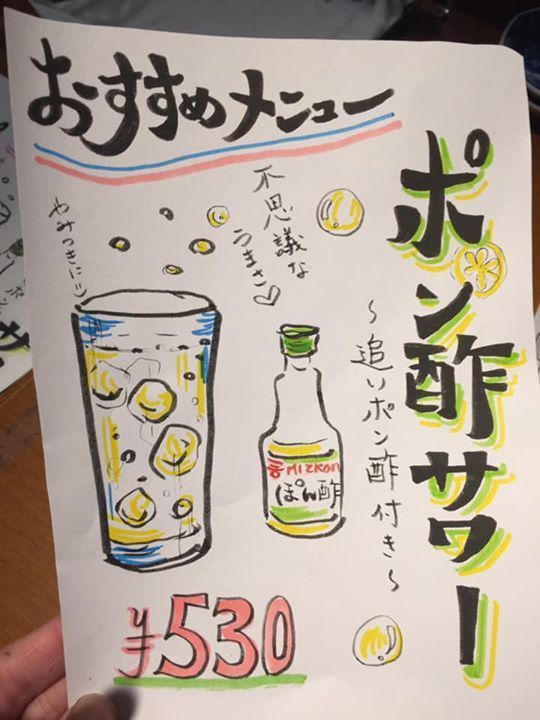 おすすめメニュー
ポン酢サワー
〜追いポン酢付き〜
不思議な
うまさ♡
やみつきに!!
MIZKAN
ぽん酢
¥530